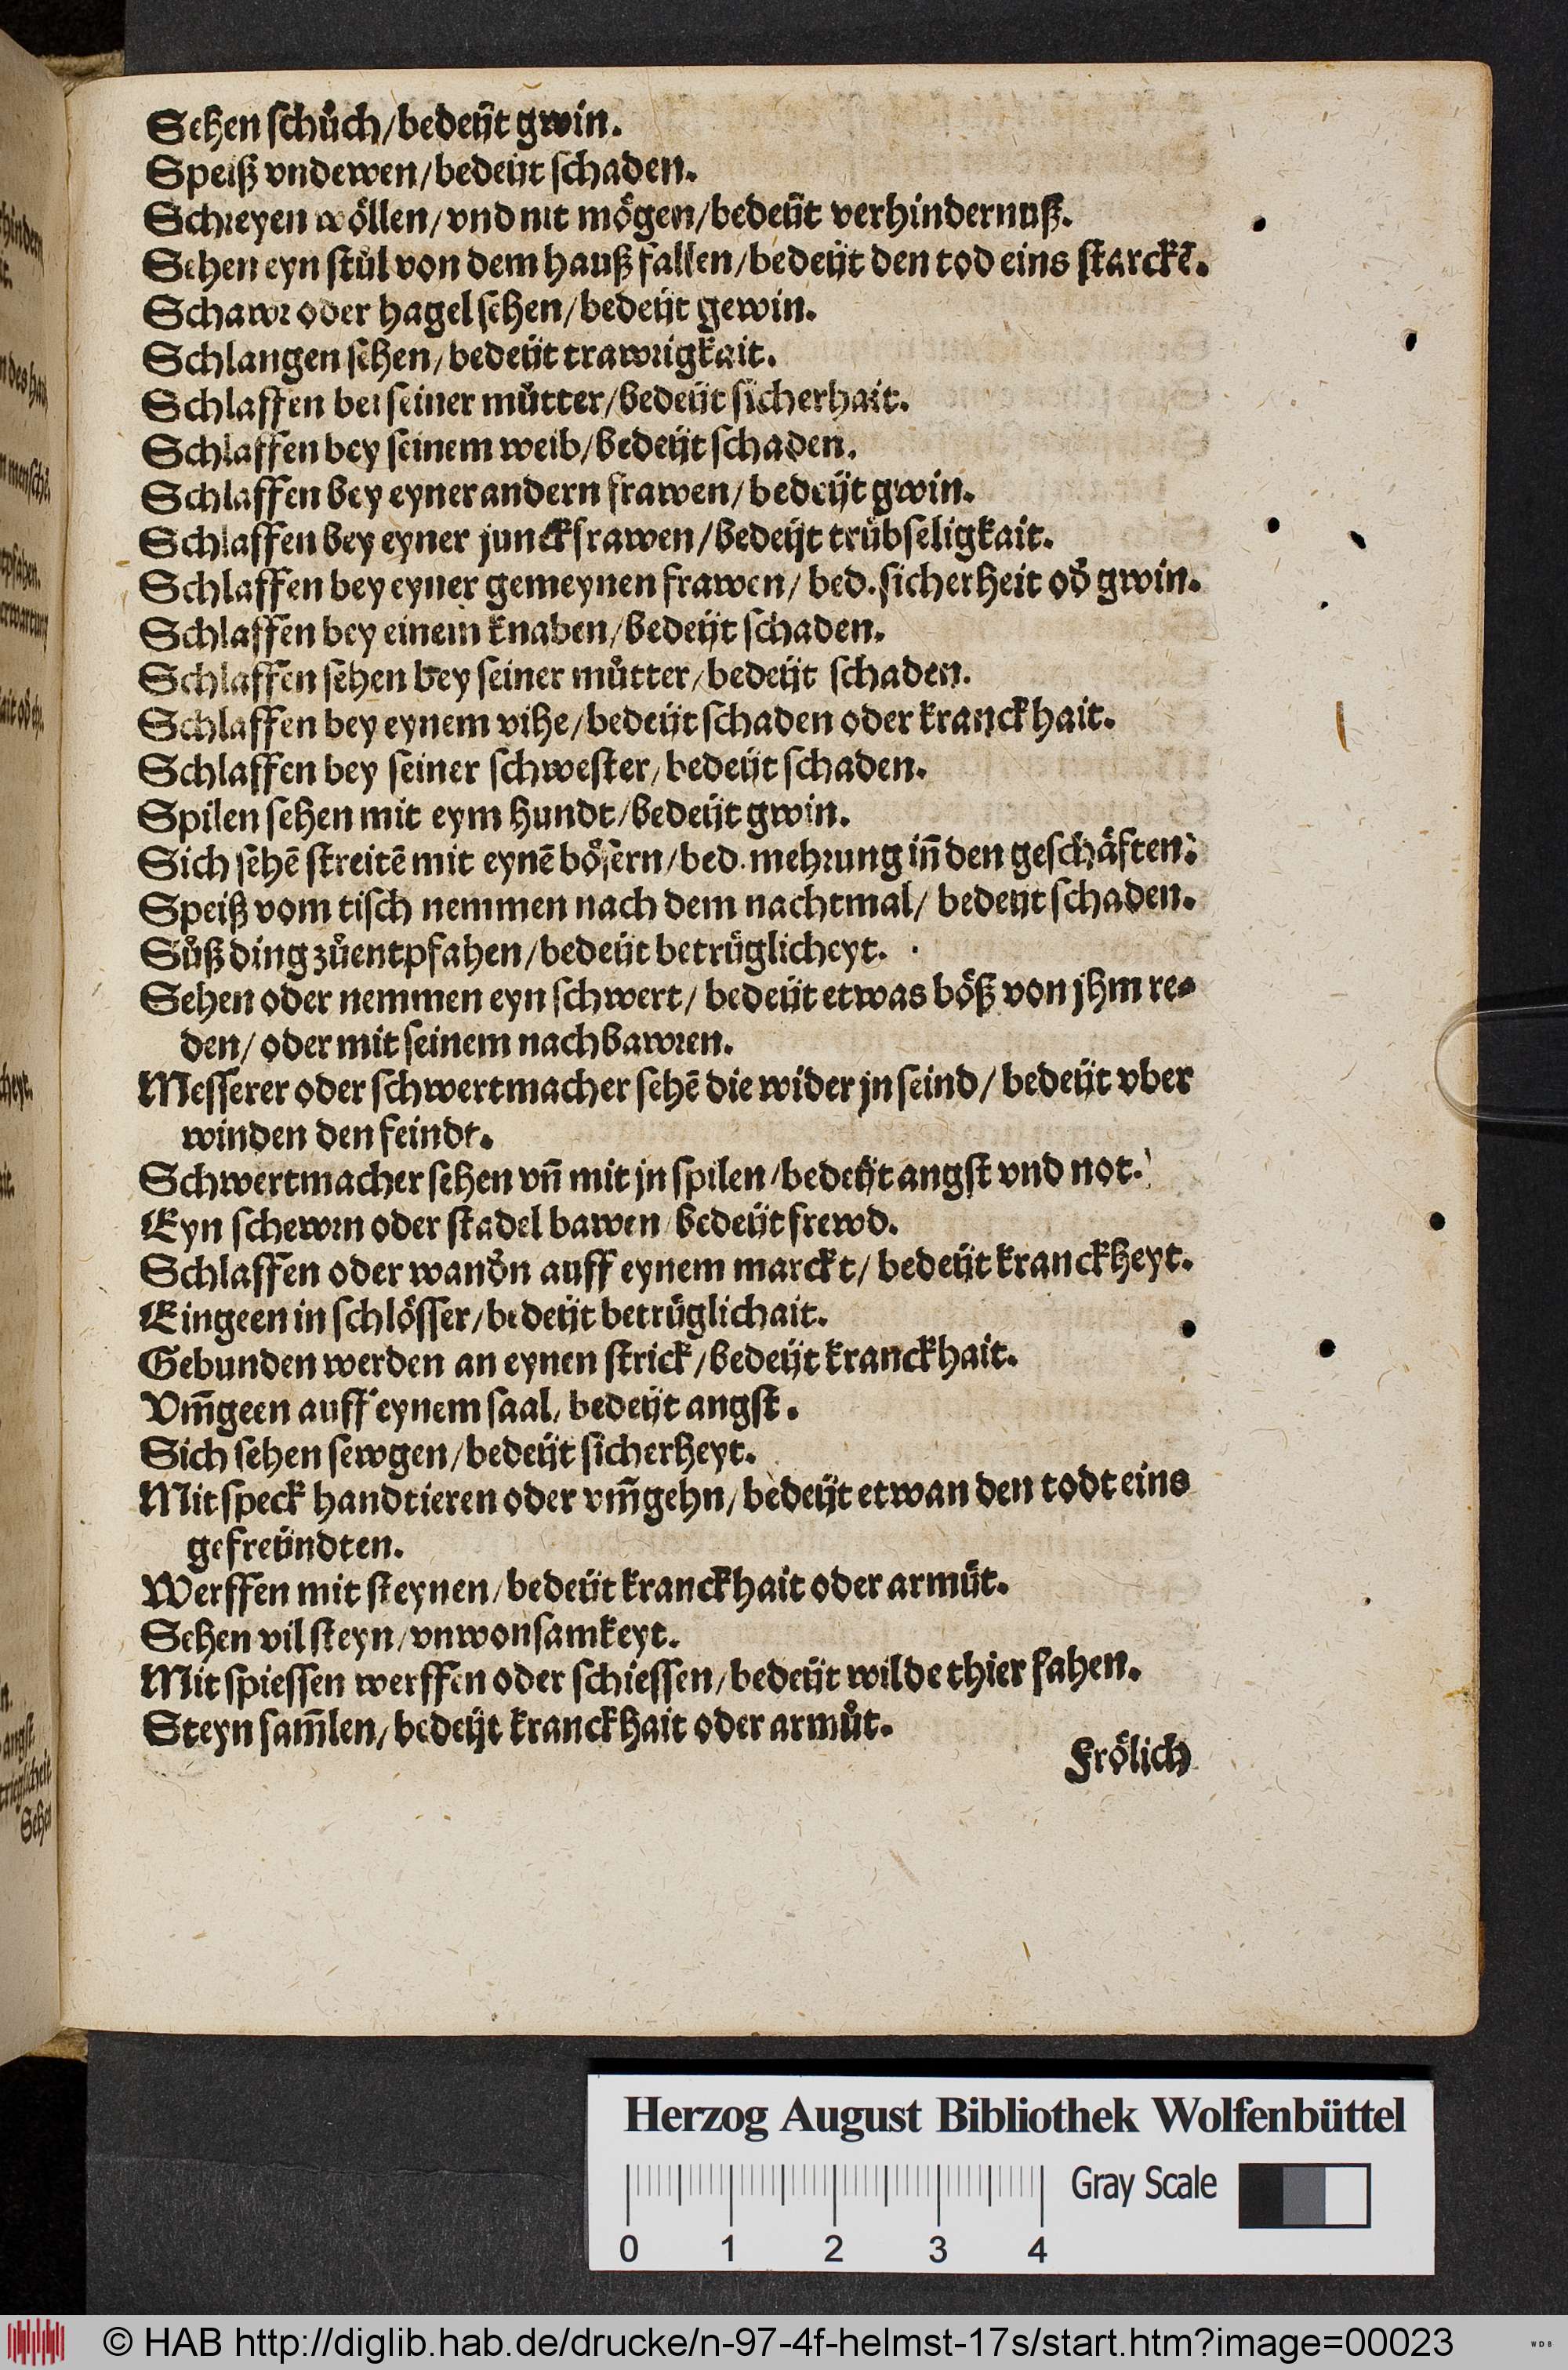 Sehen schůch/bedeüt gwin.
Speiß vndewen/bedeüt schaden.
Schreyen wöllen/vnd nit mögen/bedeüt verhindernuß.
Sehen eyn stůl von dem hauß fallen/bedeüt den tod eins starckẽ.
Schawr oder hagel sehen/bedeüt gewin.
Schlangen sehen/bedeüt trawrigkait.
Schlaffen bei seiner můtter/bedeüt sicherhait.
Schlaffen bey seinem weib/bedeüt schaden.
Schlaffen bey eyner andern frawen/bedeüt gwin.
Schlaffen bey eyner junckfrawen/bedeüt trübseligkait.
Schlaffen bey eyner gemeynen frawen/ bed. sicherheit od̕ gwin.
Schlaffen bey einem knaben/bedeüt schaden.
Schlaffen sehen bey seiner můtter/bedeüt schaden.
Schlaffen bey eynem vihe/bedeüt schaden oder kranckhait.
Schlaffen bey seiner schwester/bedeüt schaden.
Spilen sehen mit eym hundt/bedeüt gwin.
Sich sehẽ streitẽ mit eynẽ bösern/bed. mehrung iñ den geschäften.
Speiß vom tisch nemmen nach dem nachtmal/ bedeüt schaden.
Sůß ding zůentpfahen/bedeüt betrüglicheyt.
Sehen oder nemmen eyn schwert/ bedeüt etwas böß von jhm re-
den/ oder mit seinem nachbawren.
Messerer oder schwertmacher sehẽ die wider jn seind/ bedeüt vber
winden den feindt.
Schwertmacher sehen vñ mit jn spilen/bedeüt angst vnd not.
Eyn schewrn oder stadel bawen/bedeüt frewd.
Schlaffen oder wand̕n auff eynem marckt/ bedeüt kranckheyt.
Eingeen in schlösser/bedeüt betrüglichait.
Gebunden werden an eynen strick/bedeüt kranckhait.
Vm̃geen auff eynem saal/ bedeüt angst.
Sich sehen sewgen/bedeüt sicherheyt.
Mit speck handtieren oder vm̃gehn/bedeüt etwan den todt eins
gefreündten.
Werffen mit steynen/bedeüt kranckhait oder armůt.
Sehen vil steyn/vnwonsamkeyt.
Mit spiessen werffen oder schiessen/bedeüt wilde thier fahen.
Steyn sam̃len/bedeüt kranckhait oder armůt.
Frölich
Herzog August Bibliothek Wolfenbüttel
Gray Scale
0 1 2 3 4
© HAB http://diglib.hab.de/drucke/n-97-4f-helmst-17s/start.htm?image=00023